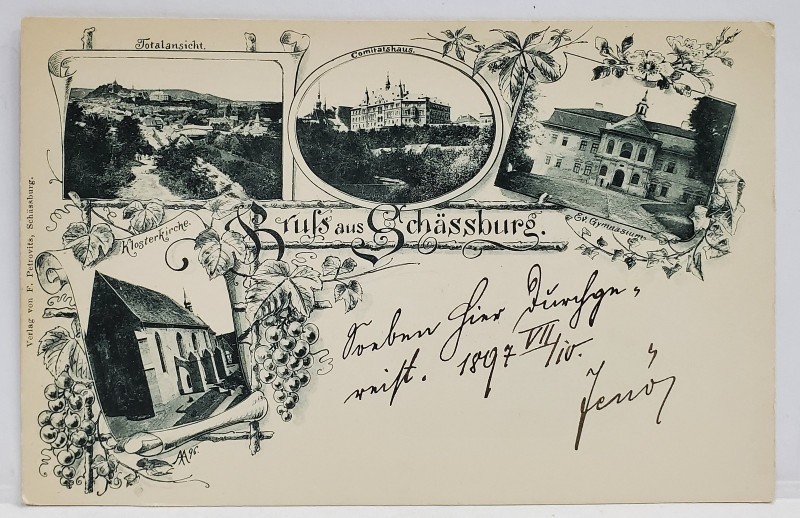 Totalansicht.
Comitatshaus.
Ev. Gymnasium
Gruß aus Schässburg.
Klosterkirche.
Verlag von F. Petrovits, Schässburg.
Soeben hier durchge-
reist. 1897 VII/10.
Jenö